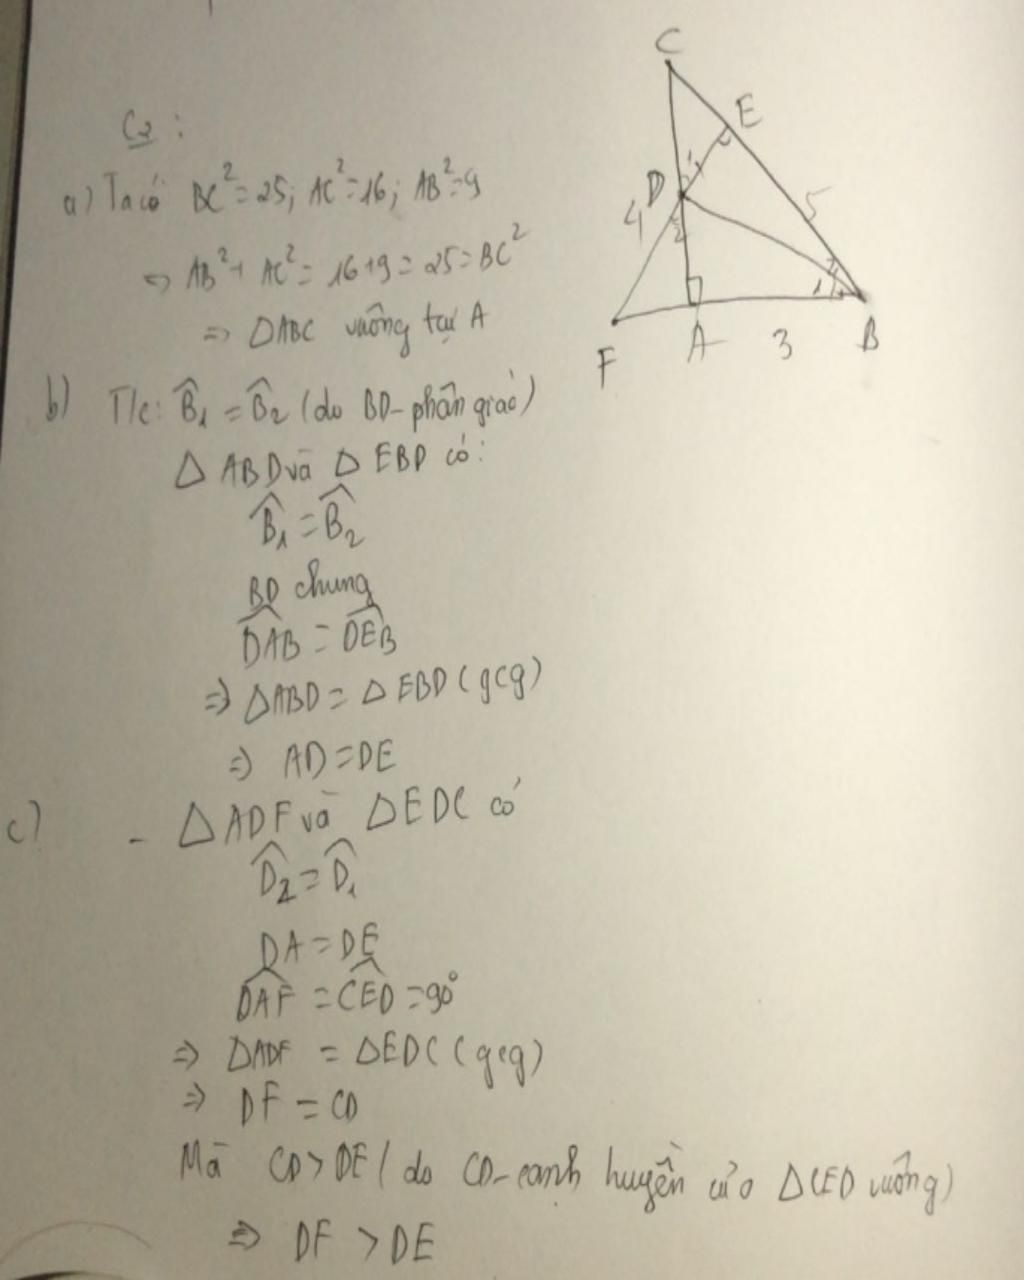 C2:
a) Ta có BC²=25; AC²=16; AB²=9
⇒ AB²+ AC²= 16+9=25=BC²
⇒ ΔABC vuông tại A
b) T/c: B̂₁ = B̂₂ (do BD-phân giác)
Δ ABD và Δ EBD có:
B̂₁ = B̂₂
BD chung
DAB = DEB
⇒ ΔABD = Δ EBD (gcg)
⇒ AD = DE
c) - ΔADF và ΔEDC có
D̂₂ = D̂₁
DA = DE
DAF = CED = 90°
⇒ ΔADF = ΔEDC (gcg)
⇒ DF = CD
Mà CD > DE (do CD-cạnh huyền của ΔCED vuông)
⇒ DF > DE
C
E
D
1
4
2
5
2
1
F
A
3
B